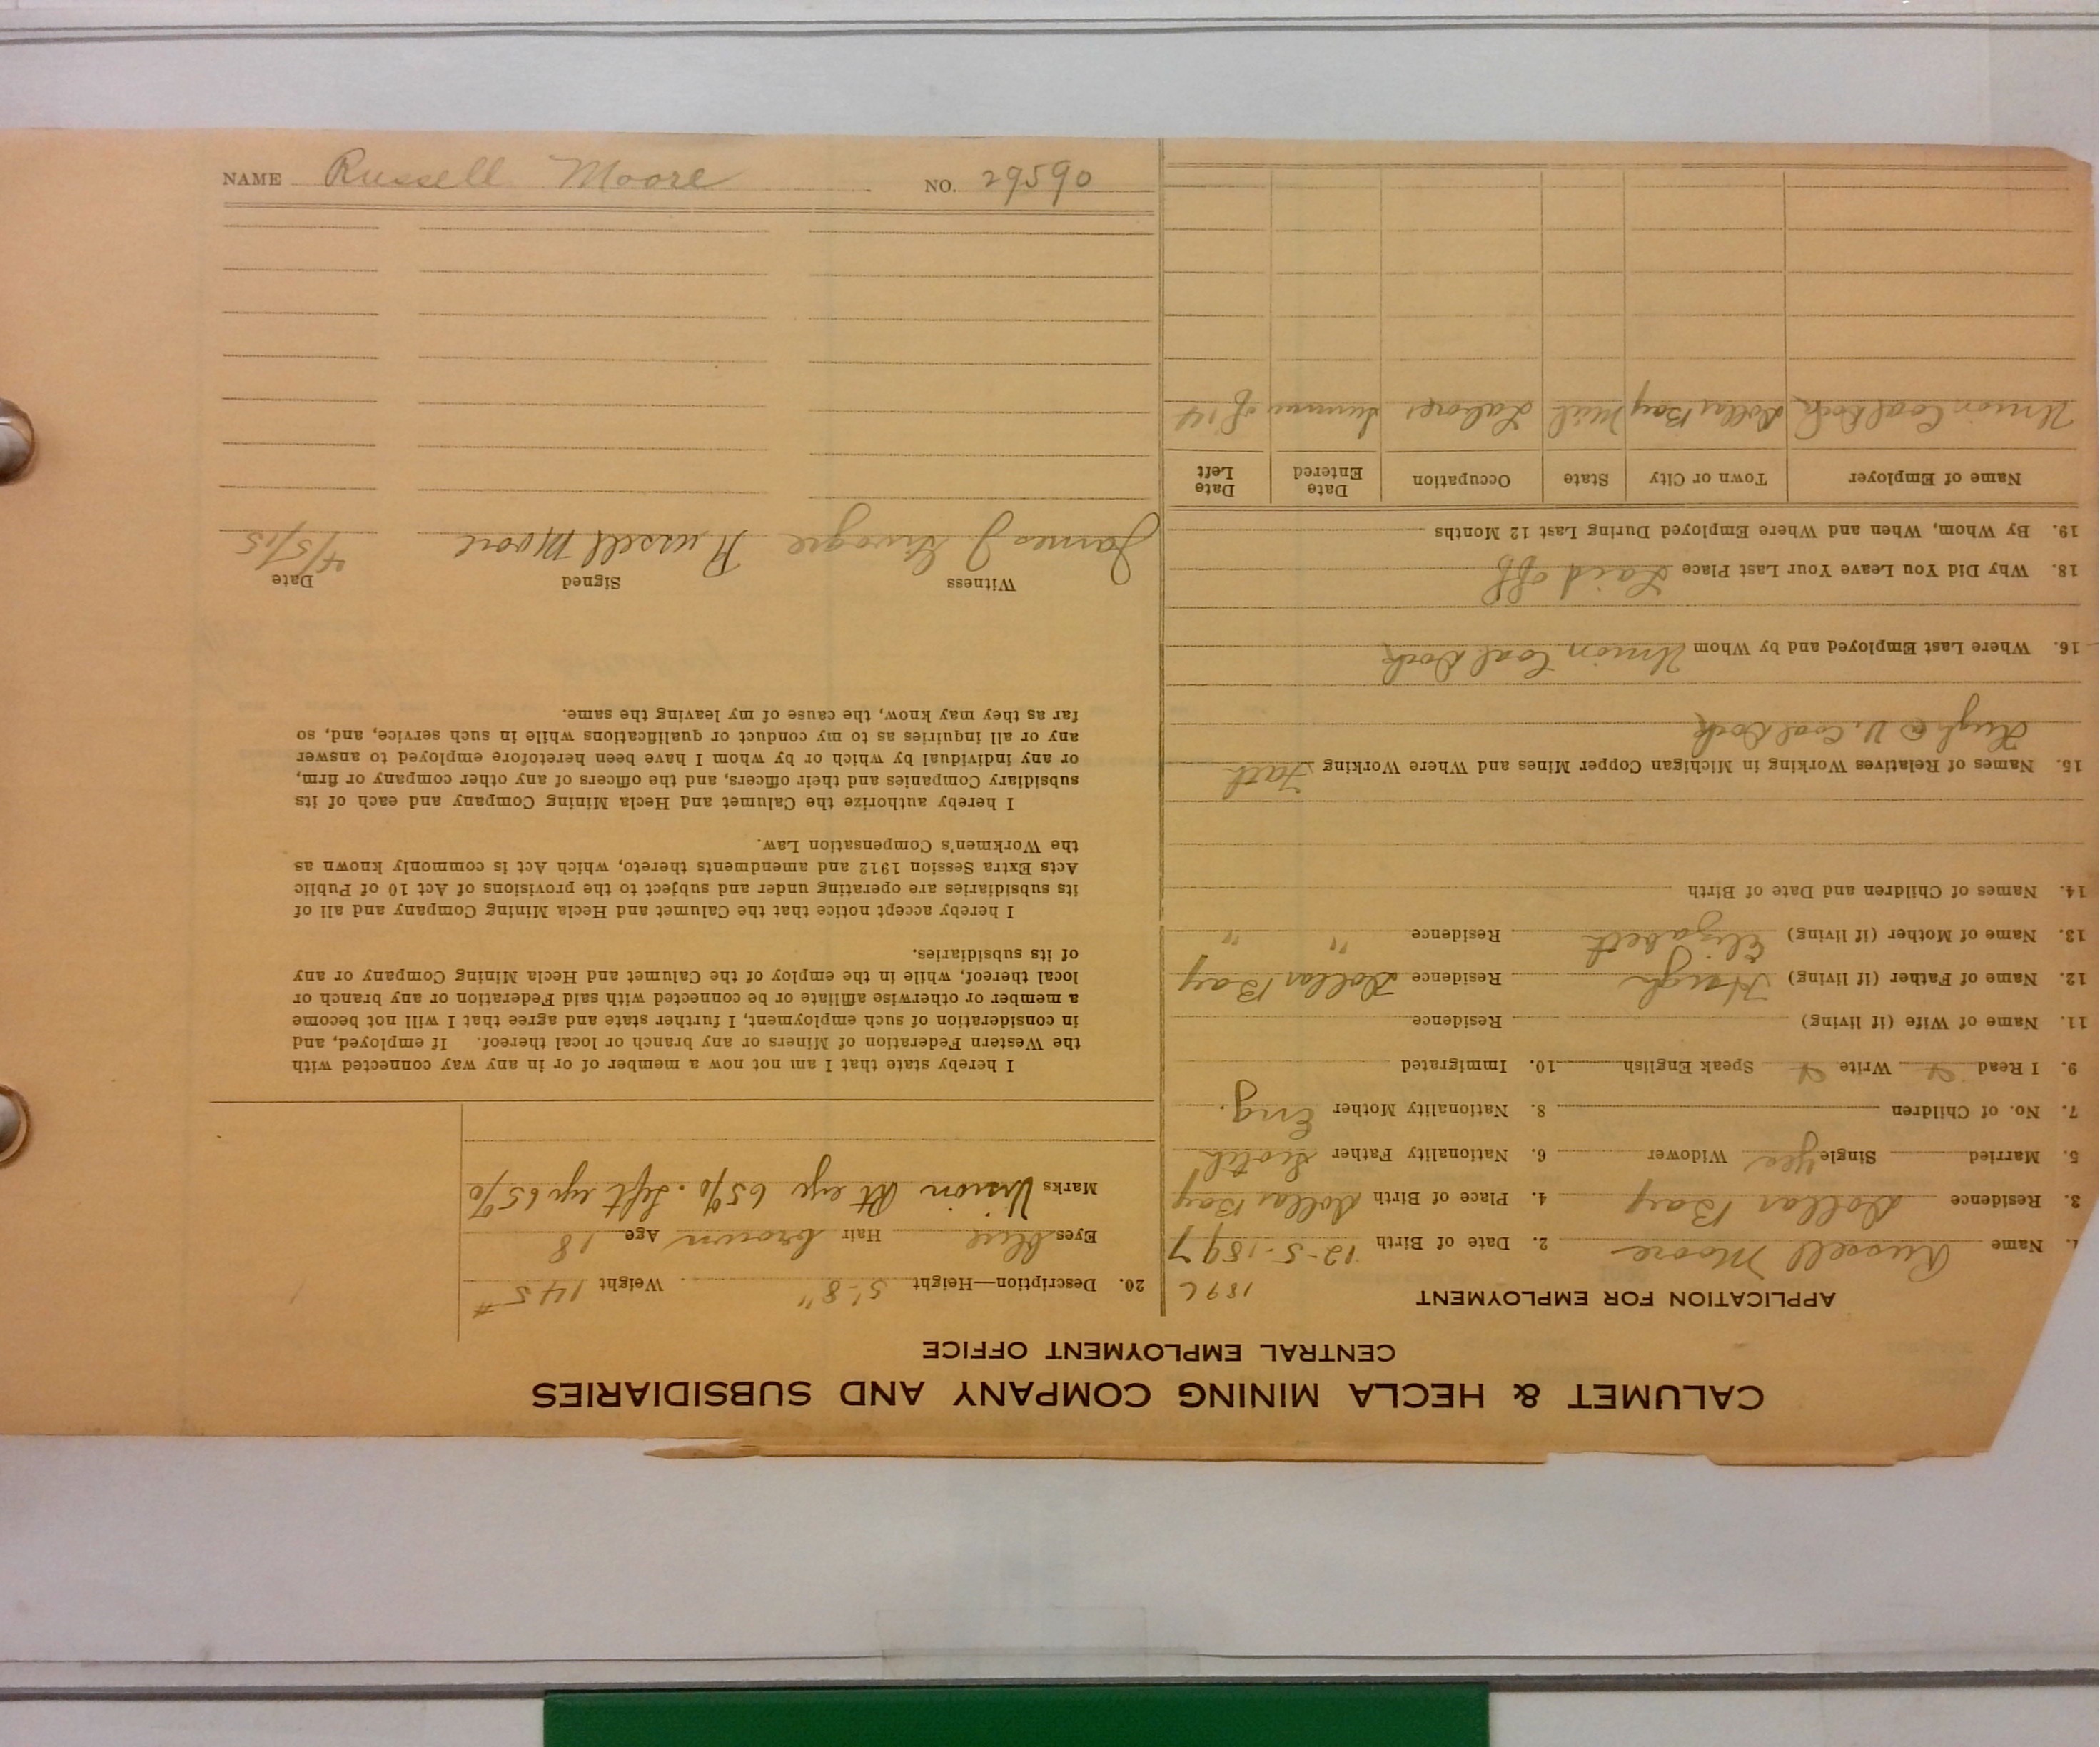 CALUMET & HECLA MINING COMPANY AND SUBSIDIARIES
CENTRAL EMPLOYMENT OFFICE
APPLICATION FOR EMPLOYMENT 1896
1. Name Russell Moore 2. Date of Birth 12-5-1897
3. Residence Dollar Bay 4. Place of Birth Dollar Bay
5. Married Single Yes Widower 6. Nationality Father Scotch
7. No. of Children 8. Nationality Mother Eng.
9. I Read Write Speak English 10. Immigrated
11. Name of Wife (if living) Residence
12. Name of Father (if living) Hugh Residence Dollar Bay
13. Name of Mother (if living) Elizabeth Residence " "
14. Names of Children and Date of Birth
15. Names of Relatives Working in Michigan Copper Mines and Where Working Fath
Hugh @ U. Coal Dock
16. Where Last Employed and by Whom Union Coal Dock
18. Why Did You Leave Your Last Place Laid off
19. By Whom, When and Where Employed During Last 12 Months
Name of Employer Town or City State Occupation Date Entered Date Left
Union Coal Dock Dollar Bay Mich Laborer Summer of 14
20. Description—Height 5'-8" Weight 145#
Eyes blue Hair brown Age 18
Marks Vision Rt eye 65% . Left eye 65%
I hereby state that I am not now a member of or in any way connected with
the Western Federation of Miners or any branch or local thereof. If employed, and
in consideration of such employment, I further state and agree that I will not become
a member or otherwise affiliate or be connected with said Federation or any branch or
local thereof, while in the employ of the Calumet and Hecla Mining Company or any
of its subsidiaries.
I hereby accept notice that the Calumet and Hecla Mining Company and all of
its subsidiaries are operating under and subject to the provisions of Act 10 of Public
Acts Extra Session 1912 and amendments thereto, which Act is commonly known as
the Workmen's Compensation Law.
I hereby authorize the Calumet and Hecla Mining Company and each of its
subsidiary Companies and their officers, and the officers of any other company or firm,
or any individual by which or by whom I have been heretofore employed to answer
any or all inquiries as to my conduct or qualifications while in such service, and, so
far as they may know, the cause of my leaving the same.
Witness Signed Date
James J. Russell Moore 4/5/15
NAME Russell Moore NO. 29590